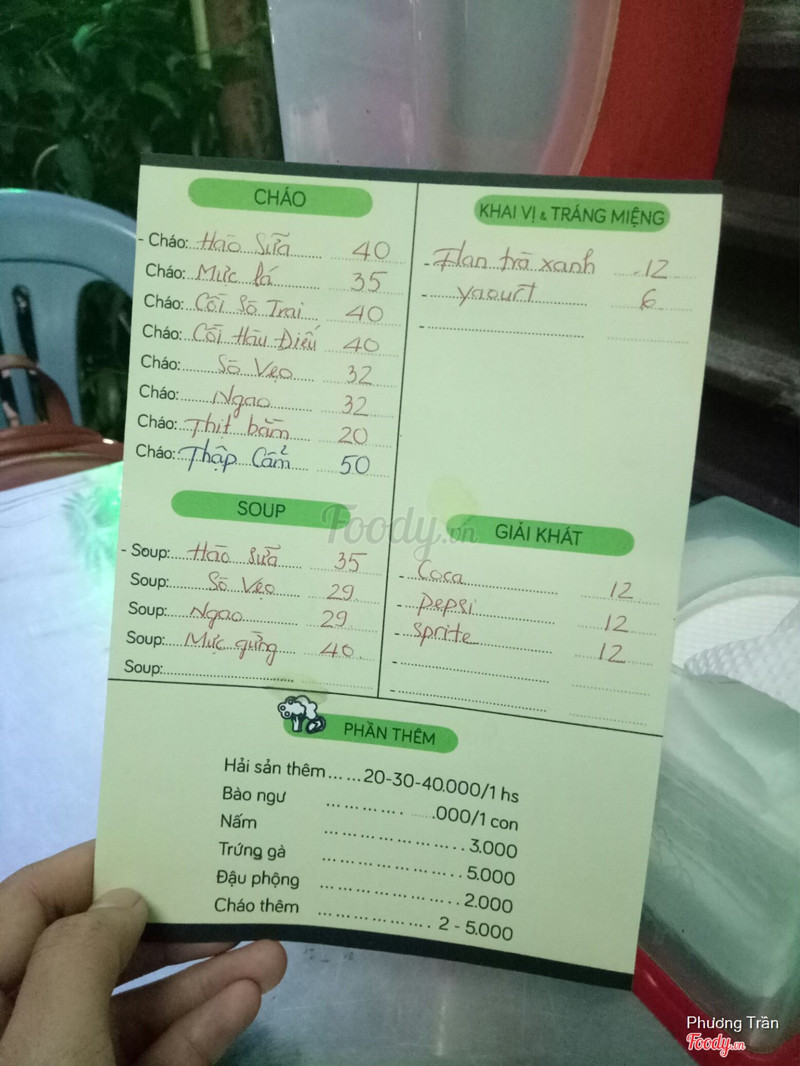 CHÁO
- Cháo: Hào Sữa 40
Cháo: Mực lá 35
Cháo: Cồi Sò Trai 40
Cháo: Cồi Hàu Điếu 40
Cháo: Sò Vẹo 32
Cháo: Ngao 32
Cháo: Thịt bằm 20
Cháo: Thập Cẩm 50
KHAI VỊ & TRÁNG MIỆNG
- Flan trà xanh 12
- yaourt 6
-
SOUP
- Soup: Hào sữa 35
Soup: Sò Vẹo 29
Soup: Ngao 29
Soup: Mực gừng 40
Soup:
GIẢI KHÁT
- Coca 12
- pepsi 12
- sprite 12
-
-
PHẦN THÊM
Hải sản thêm ... ... 20-30-40.000/1 hs
Bào ngư ... ... ... . .000/1 con
Nấm ... ... ... ... ... . . 3.000
Trứng gà ... ... ... ... ... . . 5.000
Đậu phộng ... ... ... ... ... . . 2.000
Cháo thêm ... ... ... ... ... . 2 - 5.000
Foody.vn
Phương Trần
Foody.vn